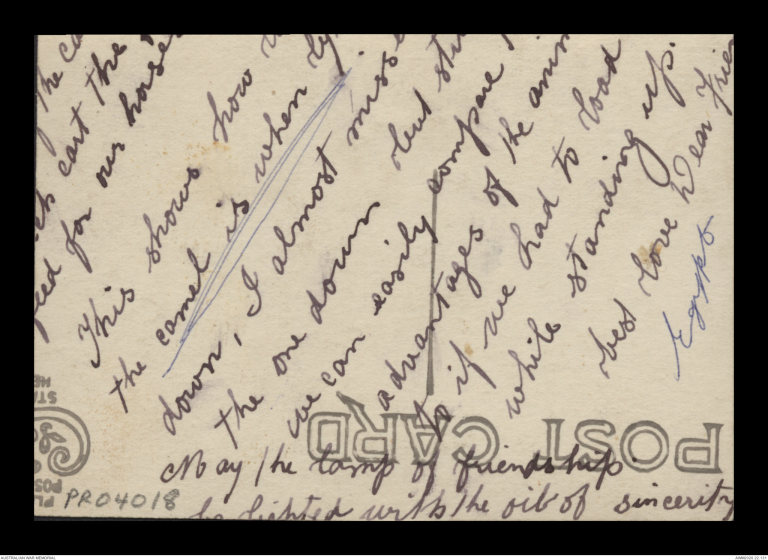 the
cart the
feed for our horses
This shows how
the camel is when
down, I almost
the one down but
we can easily compare
advantages of the
if we had to load
while standing up.
best love Dear
Egypt
POST CARD
May the lamp of friendship
be lighted with the oil of sincerity
PR04018
AUSTRALIAN WAR MEMORIAL